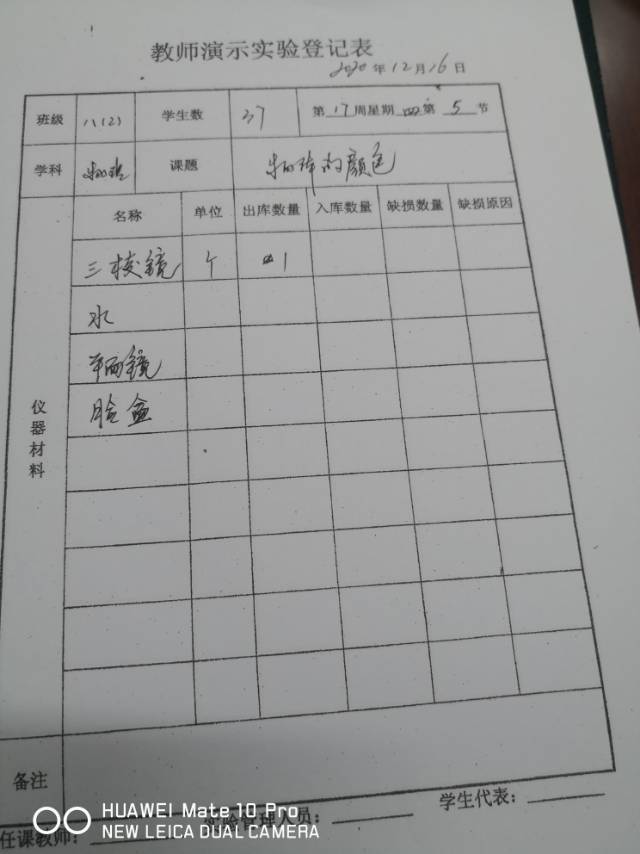 教师演示实验登记表
2020年12月16日
班级 八(2) 学生数 37 第17周星期四第5节
学科 物理 课题 物体的颜色
仪器材料
名称 单位 出库数量 入库数量 缺损数量 缺损原因
三棱镜 个 1
水
平面镜
脸盒
备注
任课教师: 实验管理人员: 学生代表:
HUAWEI Mate 10 Pro
NEW LEICA DUAL CAMERA